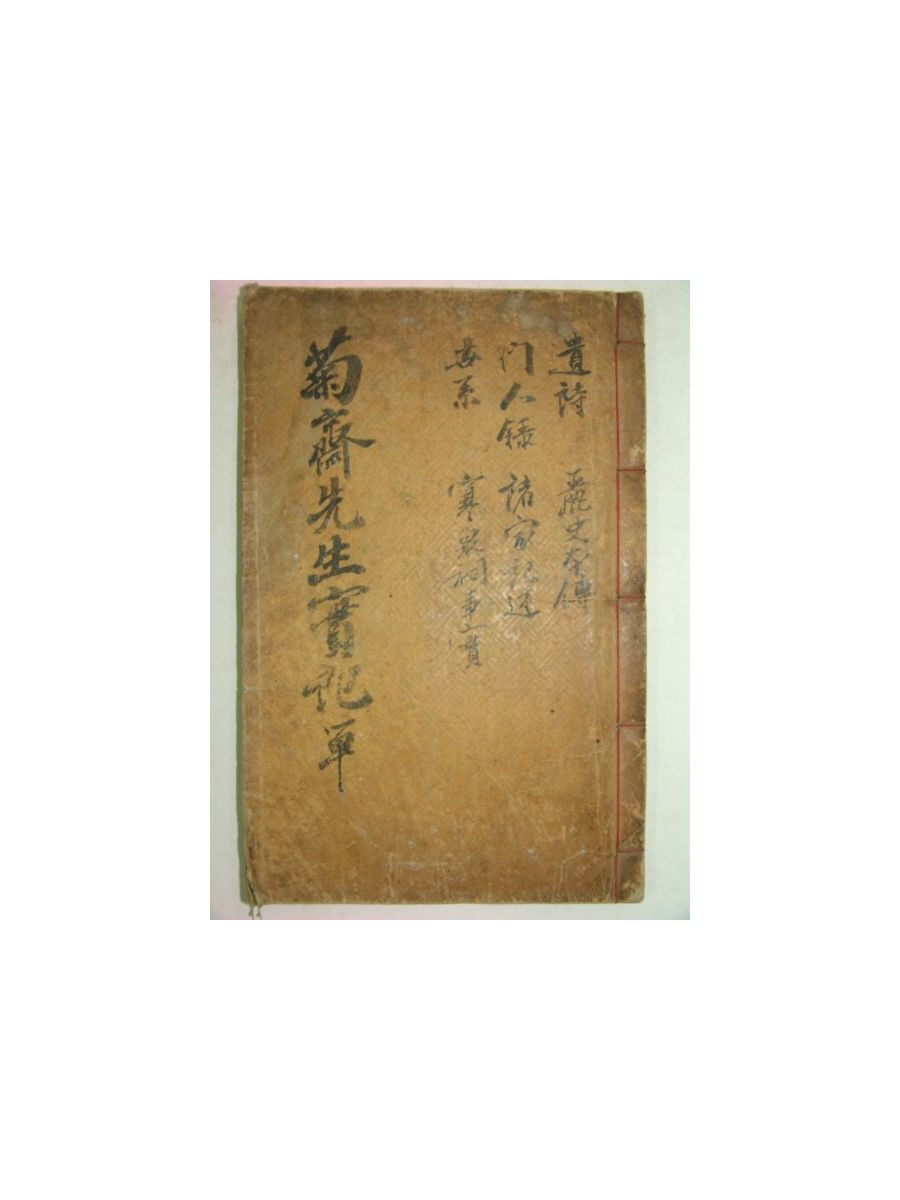 遺詩 麗史本傳
門人録 諸家記述
世系 寒泉祠事實
菊齋先生實記單